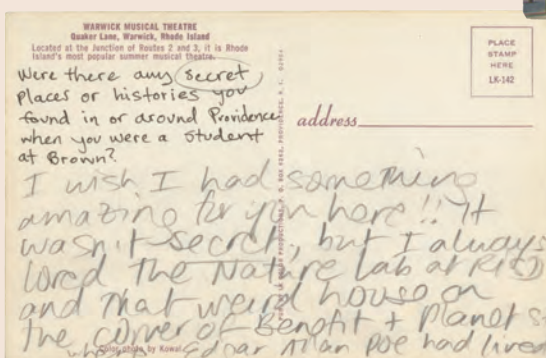 WARWICK MUSICAL THEATRE
Quaker Lane, Warwick, Rhode Island
Located at the Junction of Routes 2 and 3, it is Rhode
Island's most popular summer musical theatre.
Were there any secret
places or histories you
found in or around Providence
when you were a student
at Brown?
PLACE
STAMP
HERE
LK-142
address
I wish I had something
amazing for you here!! It
wasn't secret, but I always
loved the Nature Lab at RISD
and that weird house on
the corner of Benefit + Planet St
Color photo by Kowal
where Edgar Allan Poe had lived